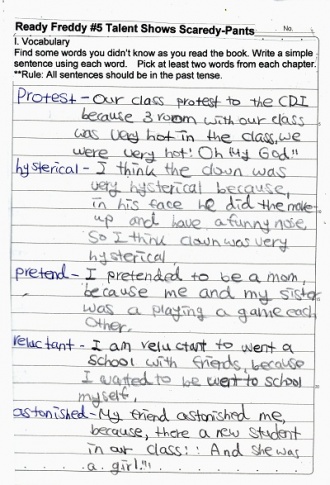 Ready Freddy #5 Talent Shows Scaredy-Pants No.
I. Vocabulary
Find some words you didn't know as you read the book. Write a simple
sentence using each word. Pick at least two words from each chapter.
**Rule: All sentences should be in the past tense.
Protest - Our class protest to the CDI
because 3 room with our class
was very hot in the class, we
were very hot! Oh My God"
hysterical - I think the clown was
very hysterical because,
in his face he did the make
up and have a funny nose
So I think clown was very
hysterical
pretend - I pretended to be a mom,
because me and my sister
was a playing a game each
other.
reluctant - I am reluctant to went a
school with friends, because
I wanted to be went to school
myself.
astonished - My friend astonished me,
because, there a new student
in our class:: And she was
a girl."